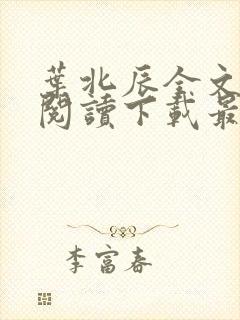 葉北辰全文
閱讀下載最
李富春